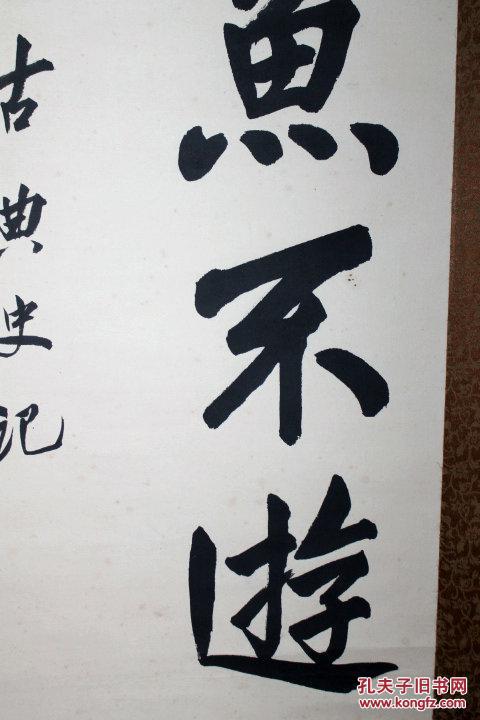 魚不遊
古典史記
孔夫子旧书网
www.kongfz.com